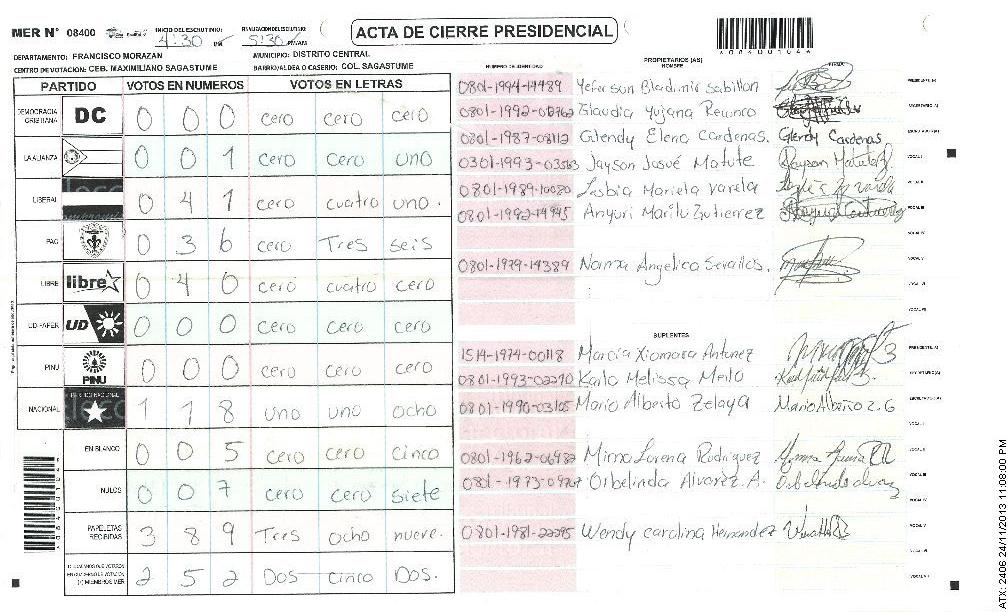 MER N° 08400 INICIO DEL ESCRUTINIO: 4:30 PM FINALIZACION DEL ESCRUTINIO: 5:30 PM
ACTA DE CIERRE PRESIDENCIAL
DEPARTAMENTO: FRANCISCO MORAZAN MUNICIPIO: DISTRITO CENTRAL
CENTRO DE VOTACION: CEB. MAXIMILIANO SAGASTUME BARRIO/ALDEA O CASERIO: COL. SAGASTUME
PARTIDO VOTOS EN NUMEROS VOTOS EN LETRAS
DEMOCRACIA CRISTIANA DC 0 0 0 cero cero cero
LA ALIANZA 0 0 1 cero cero uno
LIBERAL 0 4 1 cero cuatro uno.
PAC 0 3 6 cero Tres seis
LIBRE libre 0 4 0 cero cuatro cero
UD/FAPER UD 0 0 0 cero cero cero
PINU PINU 0 0 0 cero cero cero
NACIONAL 1 1 8 uno uno ocho
EN BLANCO 0 0 5 cero cero cinco
NULOS 0 0 7 cero cero siete
PAPELETAS RECIBIDAS 3 8 9 Tres ocho nueve.
2 5 2 Dos cinco Dos.
NUMERO DE IDENTIDAD PROPIETARIOS (AS) NOMBRE FIRMA
0801-1994-14489 Yeferson Bladimir Sabillon
0801-1992- Glaudia Yujana
0801-1987-08112 Glendy Elena Cardenas. Glendy Cardenas
0301-1993-03563 Jayson Josué Matute
0801-1989-10080 Lesbia Mariela Varela
0801-1992-14945 Anyuri Marilu Gutierrez
0801-1979-14389 Norma Angelica Sevallos.
SUPLENTES
1514-1974-00118 Marcia Xiomara Antunez
0801-1993-02270 Karla Melissa Merlo
0801-1990-03105 Mario Alberto Zelaya
0801-1962-06982 Mirna Lorena Rodriguez
Orbelinda Alvarez. A.
0801-1981-22295 Wendy carolina Hernandez
ATX: 2406 24/11/2013 11:08:00 PM